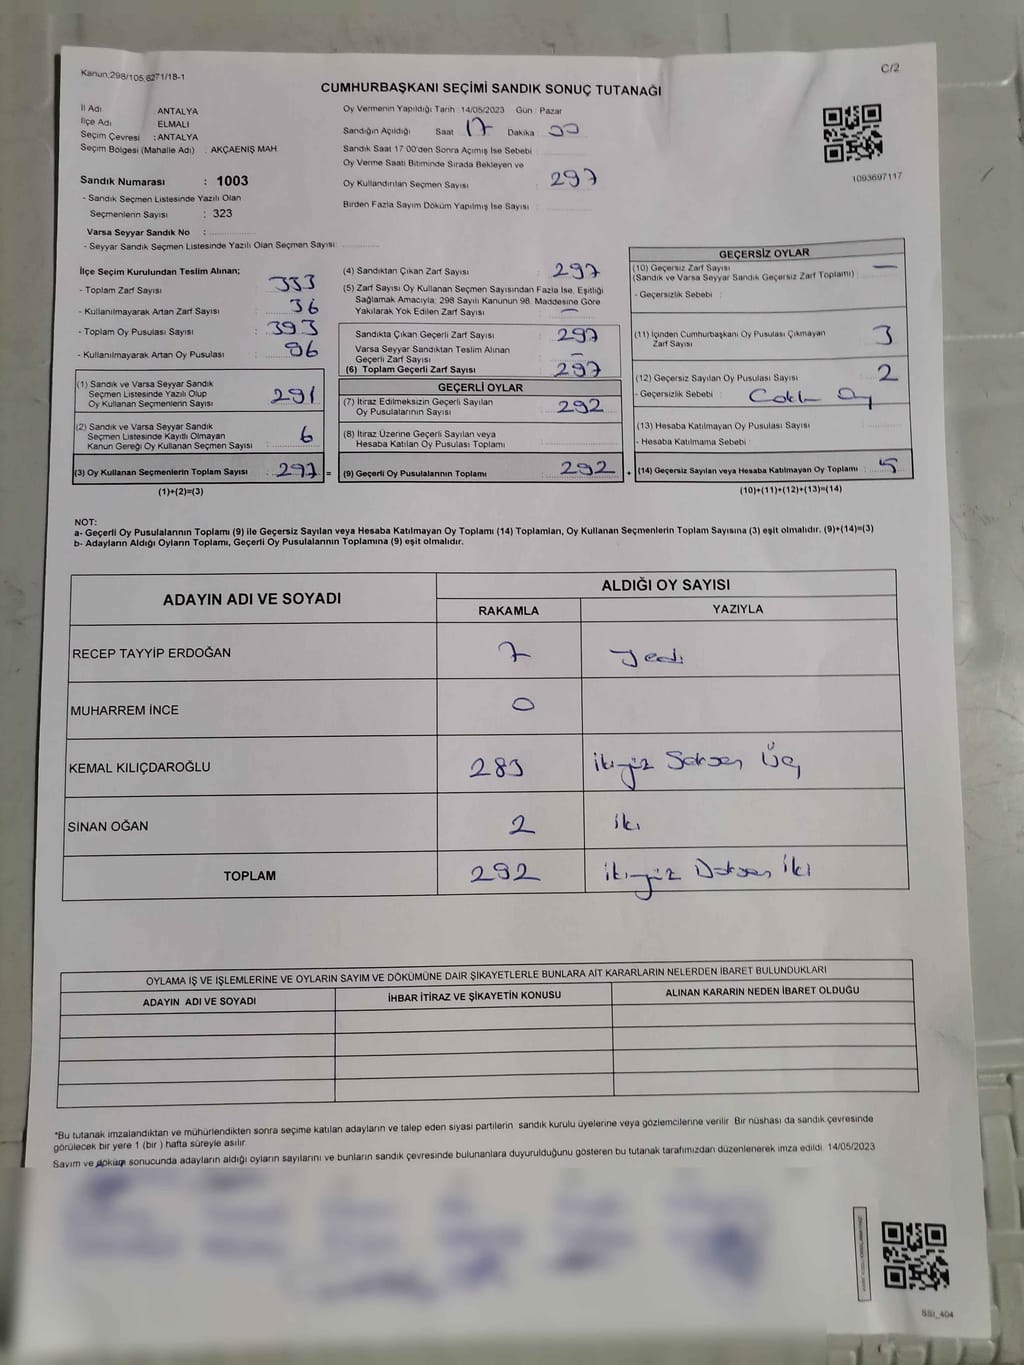 Kanun.298/105,6271/18-1
C/2
CUMHURBAŞKANI SEÇİMİ SANDIK SONUÇ TUTANAĞI
İl Adı ANTALYA
İlçe Adı ELMALI
Seçim Çevresi : ANTALYA
Seçim Bölgesi (Mahalle Adı) : AKÇAENİŞ MAH.
Sandık Numarası : 1003
- Sandık Seçmen Listesinde Yazılı Olan
Seçmenlerin Sayısı : 323
Varsa Seyyar Sandık No :
- Seyyar Sandık Seçmen Listesinde Yazılı Olan Seçmen Sayısı:
Oy Vermenin Yapıldığı Tarih : 14/05/2023 Gün : Pazar
Sandığın Açıldığı Saat 17 Dakika 00
Sandık Saat 17:00'den Sonra Açımış İse Sebebi
Oy Verme Saati Bitiminde Sırada Bekleyen ve
Oy Kullandırılan Seçmen Sayısı : 297
Birden Fazla Sayım Döküm Yapılmış İse Sayısı :
1093697117
İlçe Seçim Kurulundan Teslim Alınan;
- Toplam Zarf Sayısı : 333
- Kullanılmayarak Artan Zarf Sayısı : 36
- Toplam Oy Pusulası Sayısı : 393
- Kullanılmayarak Artan Oy Pusulası : 96
(1) Sandık ve Varsa Seyyar Sandık
Seçmen Listesinde Yazılı Olup
Oy Kullanan Seçmenlerin Sayısı : 291
(2) Sandık ve Varsa Seyyar Sandık
Seçmen Listesinde Kayıtlı Olmayan
Kanun Gereği Oy Kullanan Seçmen Sayısı : 6
(3) Oy Kullanan Seçmenlerin Toplam Sayısı : 297 =
(1)+(2)=(3)
(4) Sandıktan Çıkan Zarf Sayısı : 297
(5) Zarf Sayısı Oy Kullanan Seçmen Sayısından Fazla İse, Eşitliği
Sağlamak Amacıyla; 298 Sayılı Kanunun 98. Maddesine Göre
Yakılarak Yok Edilen Zarf Sayısı : —
Sandıkta Çıkan Geçerli Zarf Sayısı : 297
Varsa Seyyar Sandıktan Teslim Alınan
Geçerli Zarf Sayısı : —
(6) Toplam Geçerli Zarf Sayısı : 297
GEÇERLİ OYLAR
(7) İtiraz Edilmeksizin Geçerli Sayılan
Oy Pusulalarının Sayısı : 292
(8) İtiraz Üzerine Geçerli Sayılan veya
Hesaba Katılan Oy Pusulası Toplamı :
(9) Geçerli Oy Pusulalarının Toplamı : 292 +
GEÇERSİZ OYLAR
(10) Geçersiz Zarf Sayısı —
(Sandık ve Varsa Seyyar Sandık Geçersiz Zarf Toplamı) :
- Geçersizlik Sebebi :
(11) İçinden Cumhurbaşkanı Oy Pusulası Çıkmayan
Zarf Sayısı : 3
(12) Geçersiz Sayılan Oy Pusulası Sayısı : 2
- Geçersizlik Sebebi : Oy
(13) Hesaba Katılmayan Oy Pusulası Sayısı :
- Hesaba Katılmama Sebebi :
(14) Geçersiz Sayılan veya Hesaba Katılmayan Oy Toplamı : 5
(10)+(11)+(12)+(13)=(14)
NOT:
a- Geçerli Oy Pusulalarının Toplamı (9) ile Geçersiz Sayılan veya Hesaba Katılmayan Oy Toplamı (14) Toplamları, Oy Kullanan Seçmenlerin Toplam Sayısına (3) eşit olmalıdır. (9)+(14)=(3)
b- Adayların Aldığı Oyların Toplamı, Geçerli Oy Pusulalarının Toplamına (9) eşit olmalıdır.
ADAYIN ADI VE SOYADI
ALDIĞI OY SAYISI
RAKAMLA YAZIYLA
RECEP TAYYİP ERDOĞAN 7 Yedi
MUHARREM İNCE 0
KEMAL KILIÇDAROĞLU 283 İkiyüz Seksen Üç
SİNAN OĞAN 2 iki
TOPLAM 292 İkiyüz Doksan İki
OYLAMA İŞ VE İŞLEMLERİNE VE OYLARIN SAYIM VE DÖKÜMÜNE DAİR ŞİKAYETLERLE BUNLARA AİT KARARLARIN NELERDEN İBARET BULUNDUKLARI
ADAYIN ADI VE SOYADI İHBAR İTİRAZ VE ŞİKAYETİN KONUSU ALINAN KARARIN NEDEN İBARET OLDUĞU
*Bu tutanak imzalandıktan ve mühürlendikten sonra seçime katılan adayların ve talep eden siyasi partilerin sandık kurulu üyelerine veya gözlemcilerine verilir. Bir nüshası da sandık çevresinde
görülecek bir yere 1 (bir ) hafta süreyle asılır.
Sayım ve döküm sonucunda adayların aldığı oyların sayılarını ve bunların sandık çevresinde bulunanlara duyurulduğunu gösteren bu tutanak tarafımızdan düzenlenerek imza edildi. 14/05/2023
SSI_404